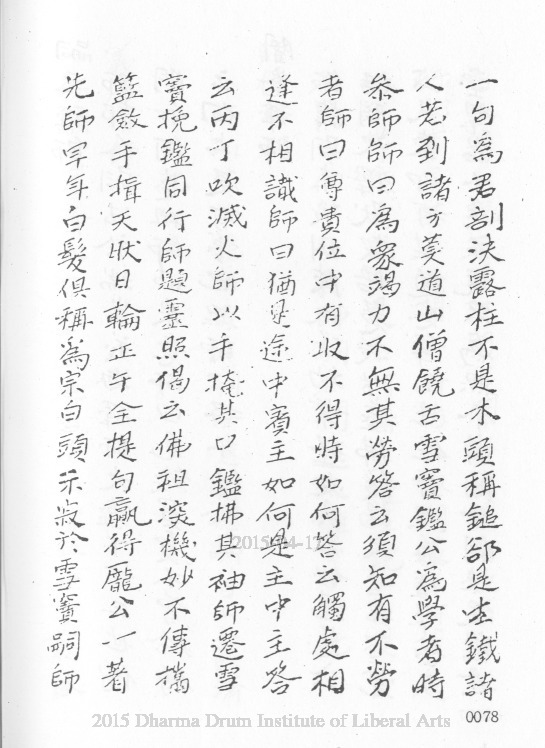 一句為君剖決露柱不是木頭稱鎚卻是生鐵諸
人若到諸方莫道山僧饒舌雪竇鑑公為學者時
叅師師曰為衆竭力不無其勞答云須知有不勞
者師曰尊貴位中有收不得時如何答云觸處相
逢不相識師曰猶是途中賓主如何是主中主答
云丙丁吹滅火師以手掩其口鑑拂其袖師遷雪
竇挽鑑同行師題靈照偈云佛祖深機妙不傳携
籃斂手揖天狀日輪正午全提句贏得龐公一著
先師早年白髮俱稱為宗白頭示寂於雪竇嗣師
2015-04-1
2015 Dharma Drum Institute of Liberal Arts
0078